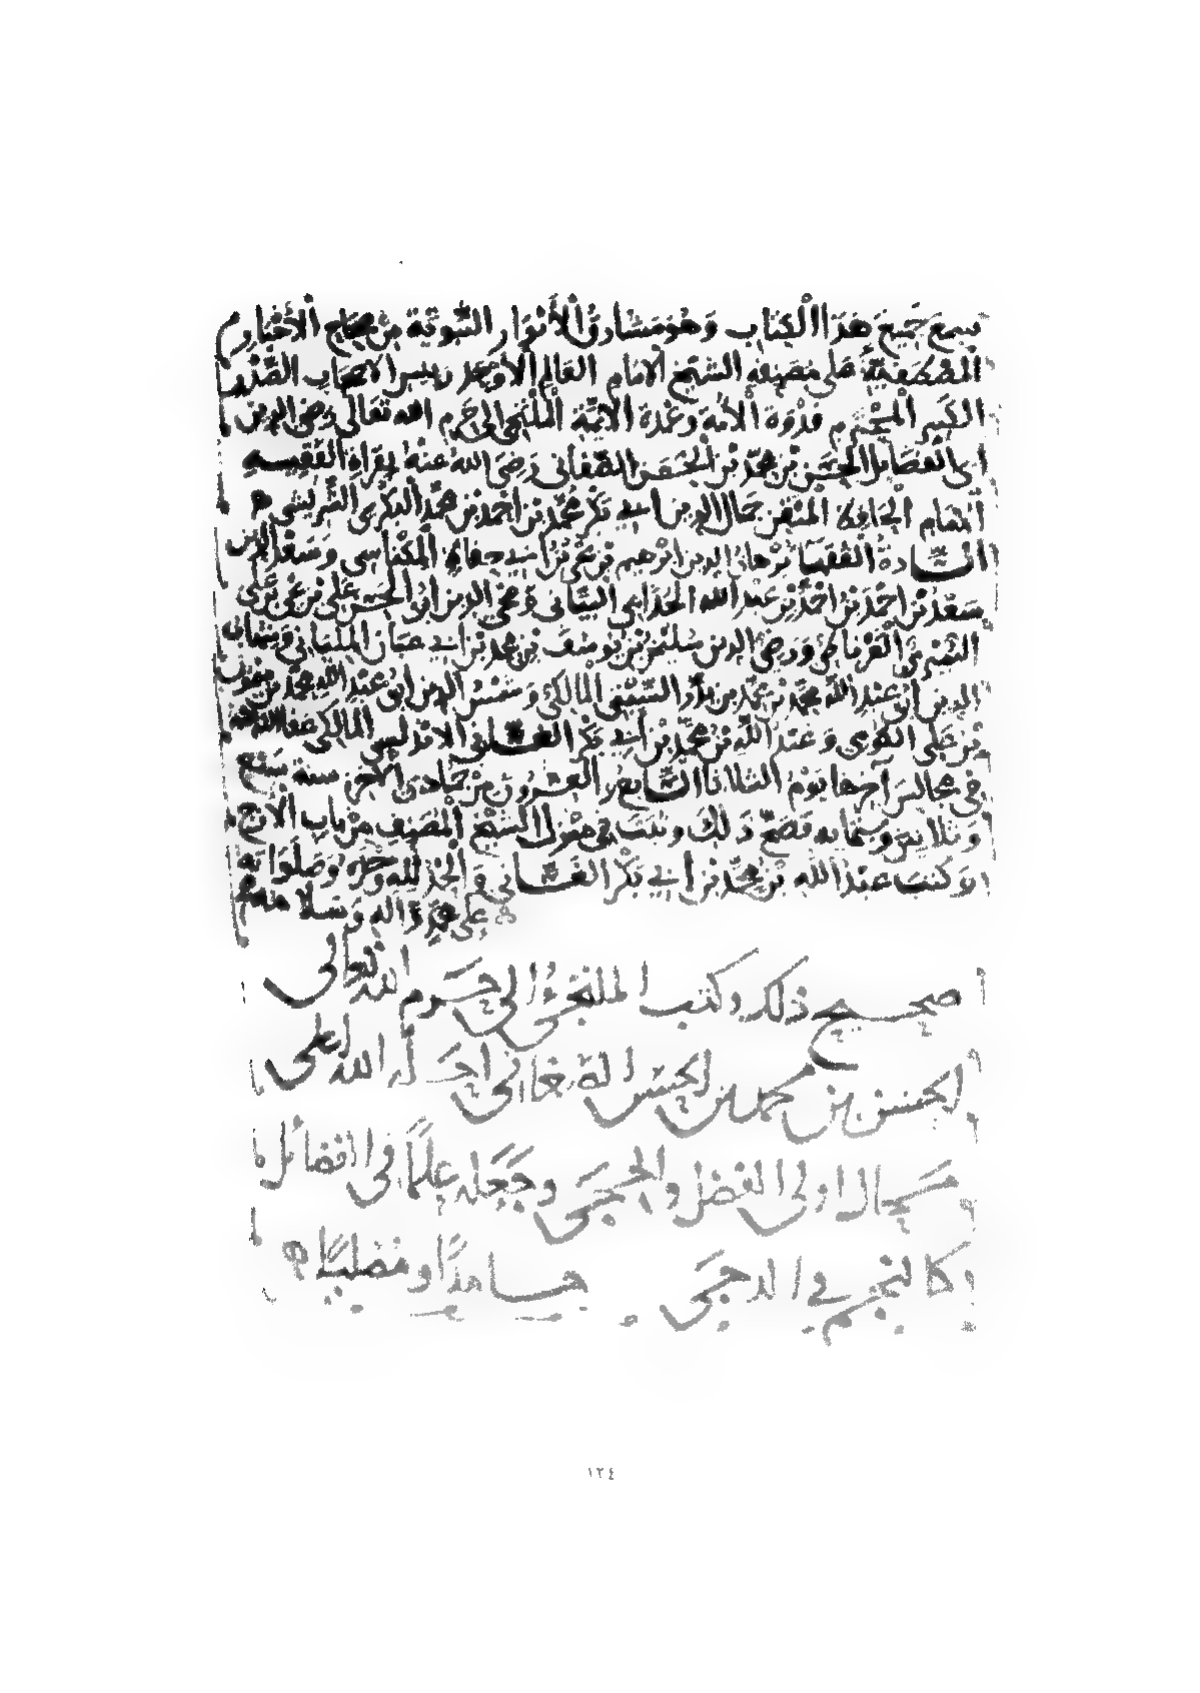 سمع جميع هذا الكتاب وهو مشارق الأنوار النبوية من صحاح الأخبار
المصطفوية على مصنفه الشيخ الإمام العالم الأوحد رئيس الأصحاب الصدر
الكبير المحترم قدوة الأمة وعمدة الأئمة الملتجئ إلى حرم الله تعالى رضي الدين
أبي الفضائل الحسن بن محمد بن الحسن الصغاني رضي الله عنه بقراءة الفقيه
الإمام المتقن جمال الدين أبي بكر محمد بن أحمد بن محمد البكري الشريشي
السادة الفقهاء برهان الدين إبرهيم بن يحيى بن أبي حفاظ المكناسي وسعد الدين
سعد بن أحمد بن أحمد بن عبد الله الجذامي البياني الدين أبو الحسن علي بن
الغرناطي ورضي الدين سليمن بن يوسف بن محمد بن أبي الملياني
الدين أبو عبد الله محمد بن محمد بن المالكي وشمس الدين أبو عبد الله محمد بن
بن علي وعبد الله بن محمد بن أبي بكر الغساني الأندلسي المالكي
في مجالس آخرها يوم الثلاثا السابع والعشرون من جمادى الآخر سنة سبع
وثلاثين وستمايه فصح ذلك وثبت في منزل الشيخ المصنف من باب الأزج
وكتب عبد الله بن محمد بن أبي بكر الغساني والحمد لله وحده وصلواته
على محمد وآله وسلامه
صحيح ذلك وكتب الملتجئ إلى حرم الله تعالى
الحسن بن محمد بن الحسن الصغاني أحله الله أعلى
محال أولي الفضل والحجى وجعله علما في الفضائل
كالنجم في الدجى حامدا ومصليا
١٢٤